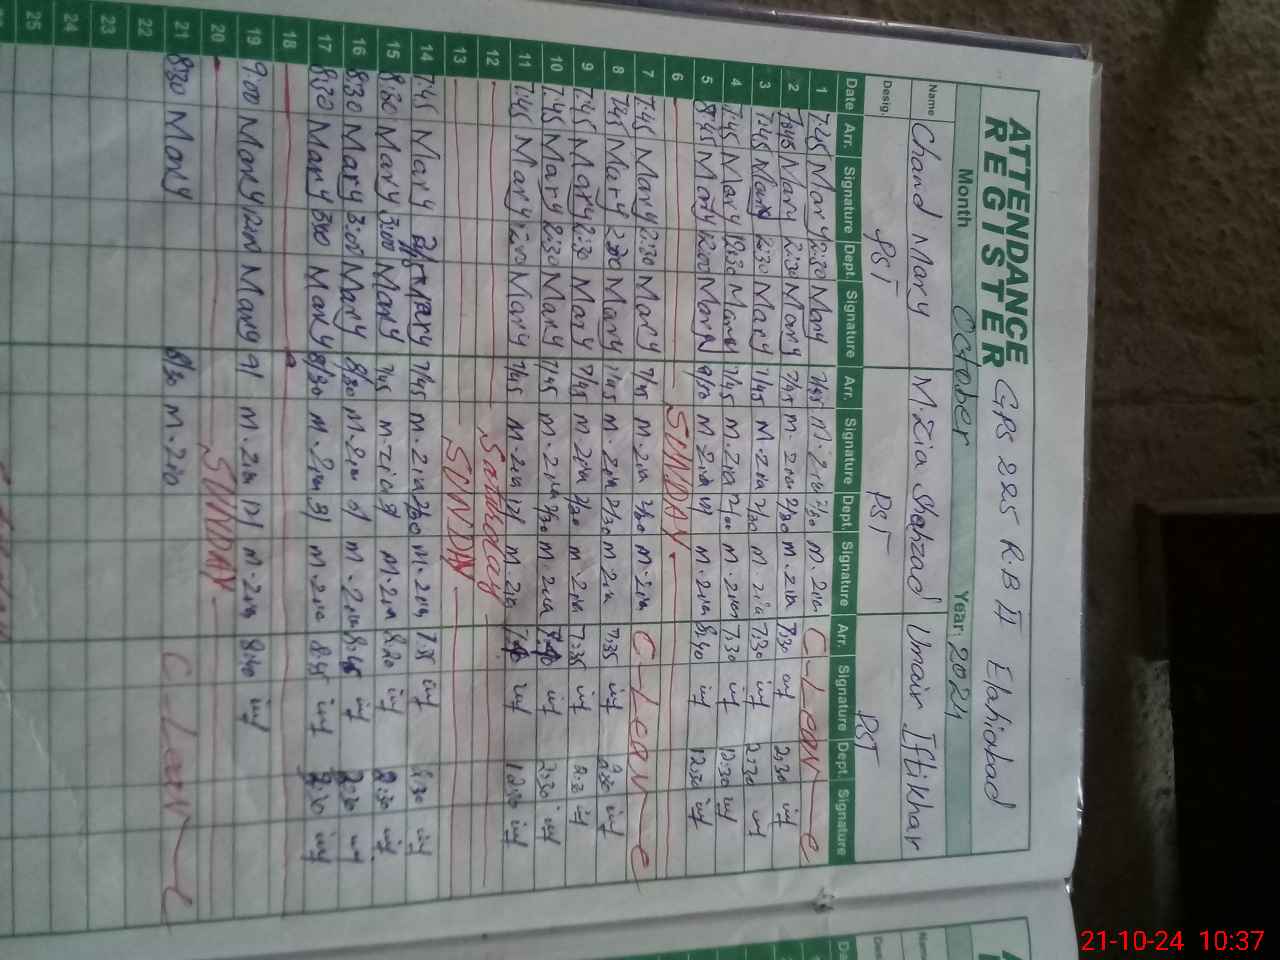 ATTENDANCE
REGISTER
GPS 225 R.B II Elahiabad
Month October Year: 2024
Name Chand Mary M. Zia Shahzad Umair Iftikhar
Desig. PST PST PST
Date Arr. Signature Dept. Signature Arr. Signature Dept. Signature Arr. Signature Dept. Signature
1 7:45 Mary 2:30 Mary 7/45 M. Zia 2/30 M. Zia C-Leave
2 7:45 Mary 2:30 Mary 7/45 M. Zia 2/30 M. Zia 7:30 2:30
3 7:45 Mary 2:30 Mary 7/45 M. Zia 2/30 M. Zia 7:30 2:30
4 7:45 Mary 12:30 Mary 7/45 M. Zia M. Zia 7:30 12:30
5 8:45 Mary 12:00 Mary M. Zia M. Zia 8:40 12:30
6 SUNDAY
7 7:45 Mary 2:30 Mary 7/45 M. Zia 2/30 M. Zia C-Leave
8 7:45 Mary 2:30 Mary 7/45 M. Zia 2/30 M. Zia 7:35 2:30
9 7:45 Mary 2:30 Mary 7/45 M. Zia 2/30 M. Zia 7:35 2:30
10 7:45 Mary 2:30 Mary 7/45 M. Zia 2/30 M. Zia 2:30
11 7:45 Mary 12:00 Mary 7/45 M. Zia 12/ M. Zia 12:30
12 Saturday
13 SUNDAY
14 7:45 Mary Mary 7/45 M. Zia 2/30 M. Zia 7:35 2:30
15 8:30 Mary 3:00 Mary M. Zia 3/ M. Zia 8:30 2:30
16 8:30 Mary 3:00 Mary 8/30 M. Zia 3/ M. Zia 8:45 2:30
17 8:30 Mary 3:00 Mary 8/30 M. Zia 3/ M. Zia 8:45 2:30
18
19 9:00 Mary 12:00 Mary 9/ M. Zia 12/ M. Zia 8:40
20 SUNDAY
21 8:30 Mary 8/30 M. Zia C-Leave
22
23
24
25
21-10-24 10:37